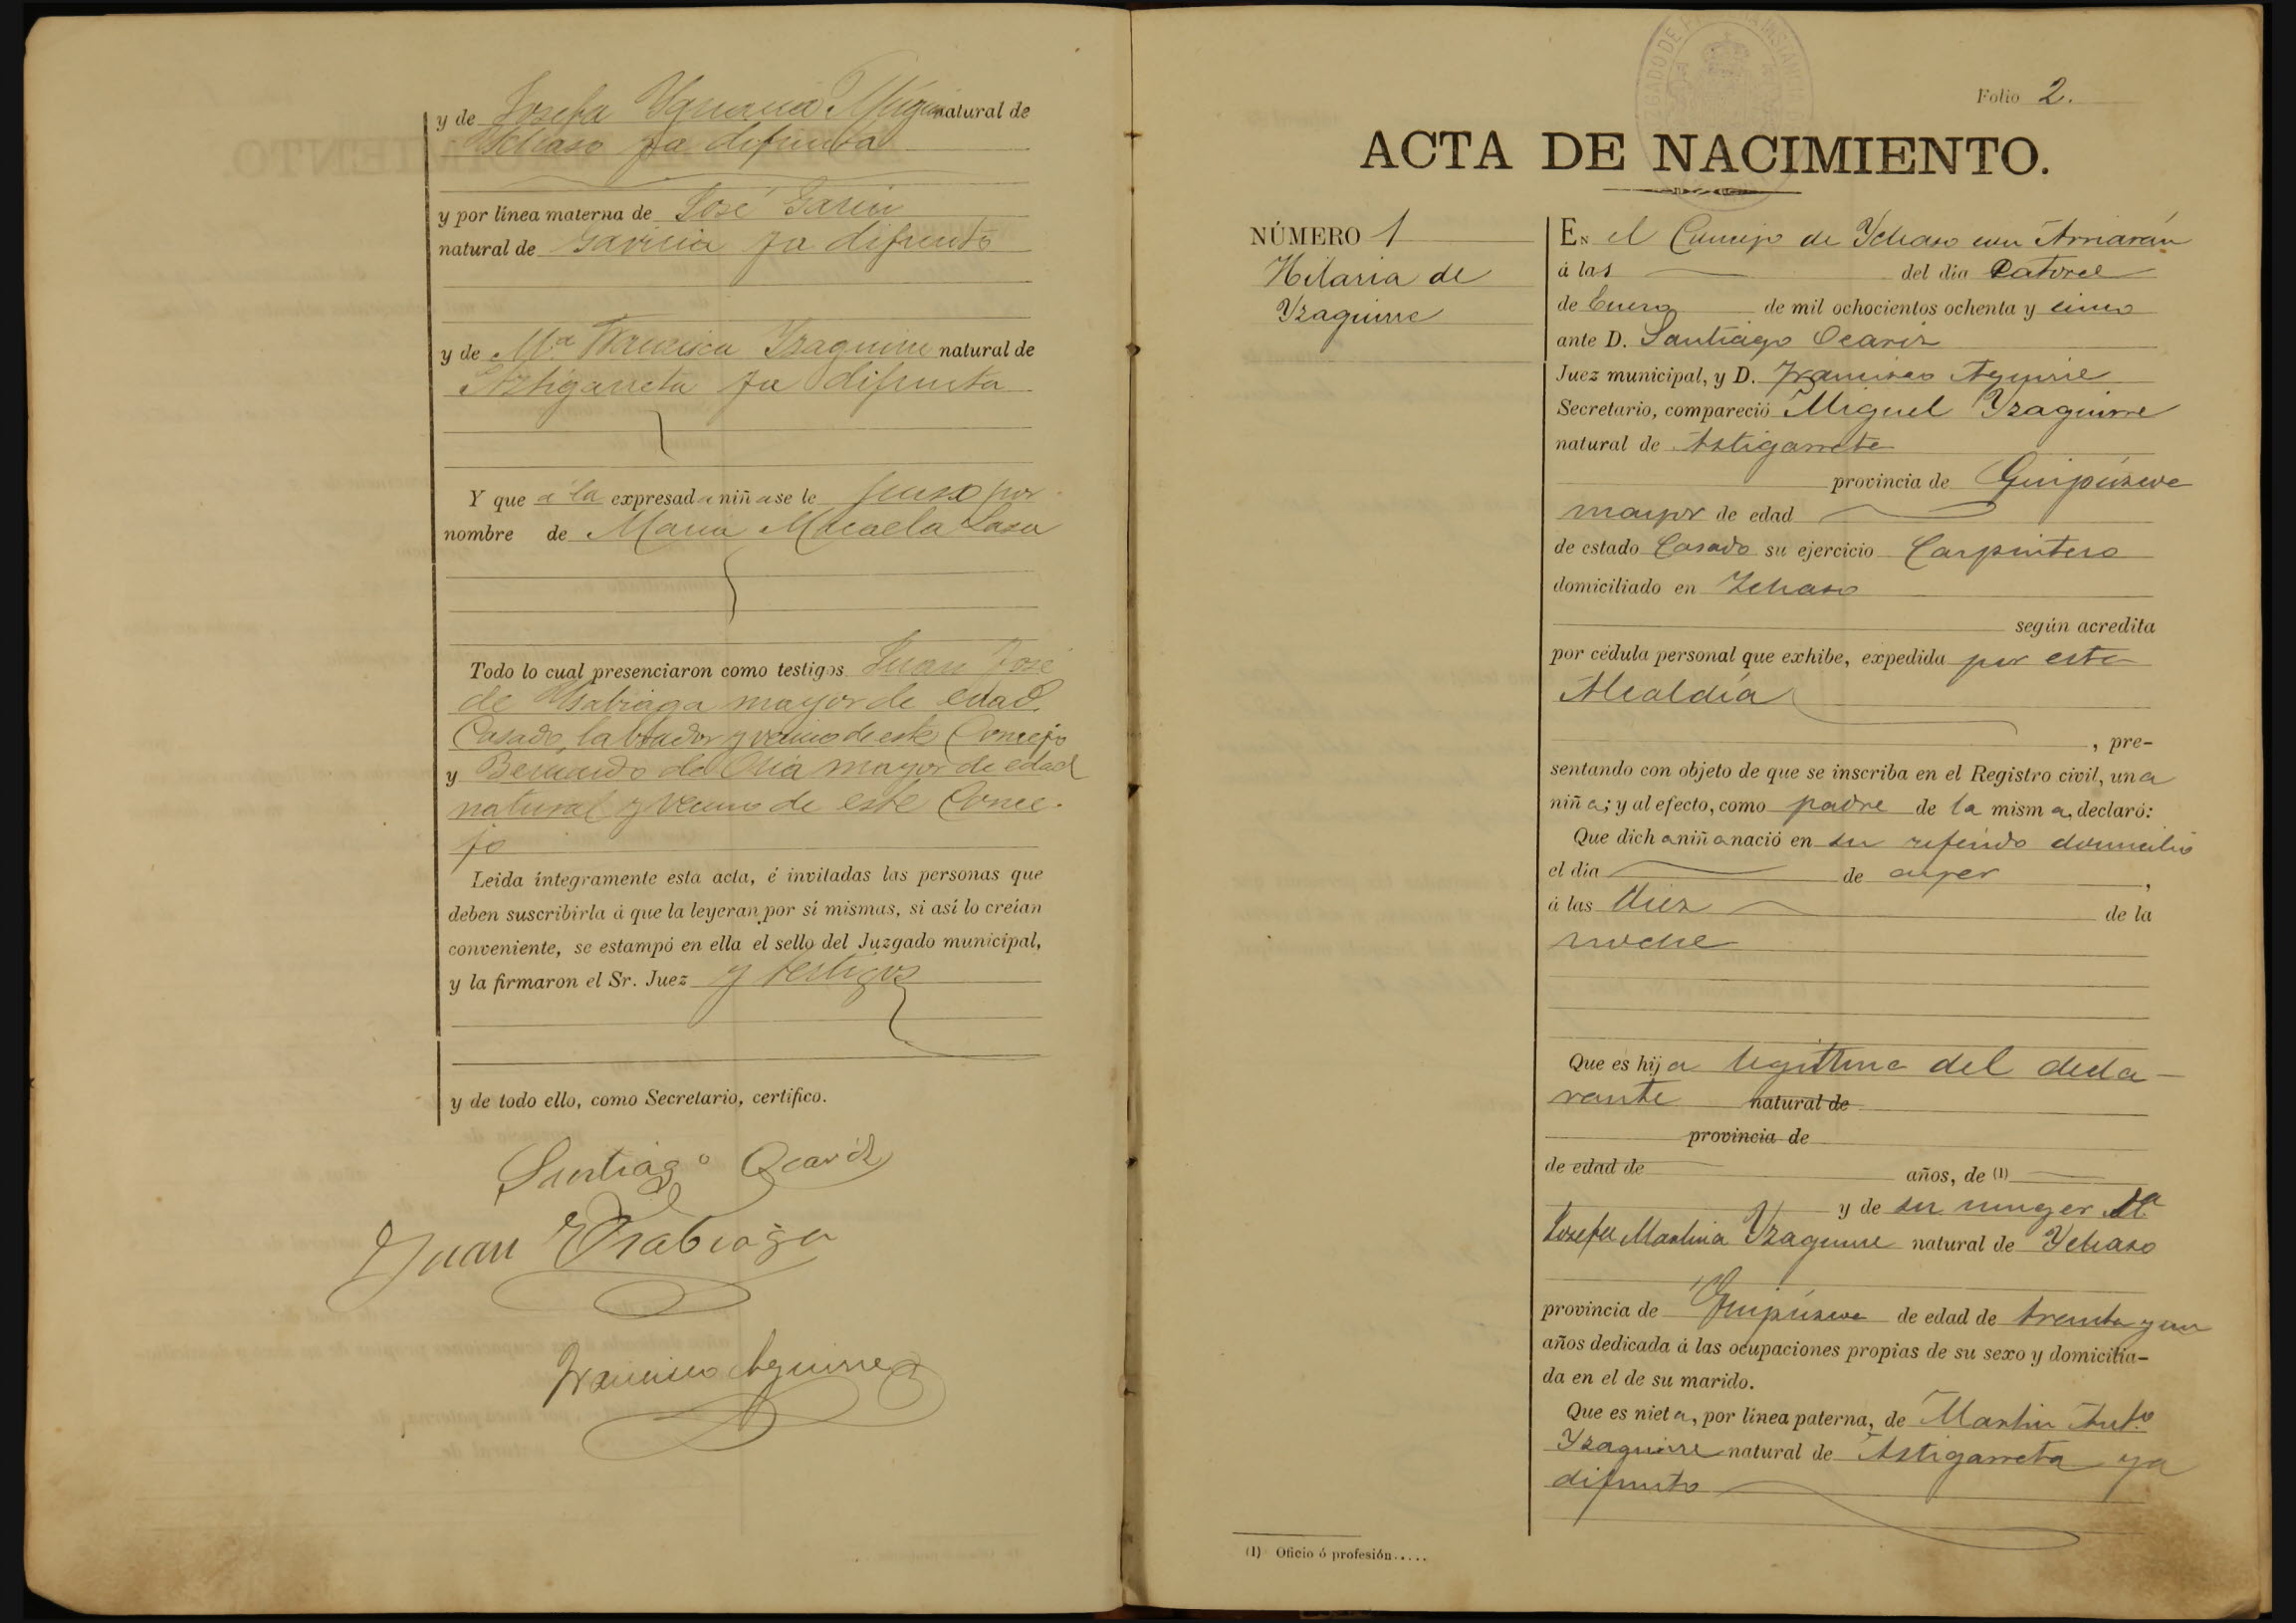 y de Josefa Ygnacia Múgica natural de
Ychaso ya difunta
y por línea materna de José Garin
natural de Gaviria ya difunto
y de M.ª Francisca Yzaguirre natural de
Aztigarreta ya difunta
Y que á la expresada niña se le puso por
nombre de Maria Micaela Lasa
Todo lo cual presenciaron como testigos Juan José
de mayor de edad
Casado, labrador y vecino de este Concejo
y Bernardo de mayor de edad
natural y vecino de este Conce-
jo
Leida íntegramente esta acta, é invitadas las personas que
deben suscribirla á que la leyeran por sí mismas, si así lo creían
conveniente, se estampó en ella el sello del Juzgado municipal,
y la firmaron el Sr. Juez y testigos
y de todo ello, como Secretario, certifico.
Santiago Ocariz
Juan
Francisco Aguirre
Folio 2.
ACTA DE NACIMIENTO.
NÚMERO 1
Hilaria de
Yzaguirre
En el Concejo de Ychaso con Arriarán
á las del dia Catorce
de Enero de mil ochocientos ochenta y cinco
ante D. Santiago Ocariz
Juez municipal, y D. Francisco Aguirre
Secretario, compareció Miguel Yzaguirre
natural de Astigarreta
provincia de Guipúzcoa
mayor de edad
de estado Casado su ejercicio Carpintero
domiciliado en Ychaso
según acredita
por cédula personal que exhibe, expedida por esta
Alcaldía
, pre-
sentando con objeto de que se inscriba en el Registro civil, una
niña; y al efecto, como padre de la misma, declaró:
Que dicha niña nació en su referido domicilio
el dia de ayer,
á las diez de la
noche
Que es hija legitima del decla-
rante natural de
provincia de
de edad de años, de (1)
y de su muger D.ª
Josefa Martina Yzaguirre natural de Ychaso
provincia de Guipúzcoa de edad de treinta y un
años dedicada á las ocupaciones propias de su sexo y domicilia-
da en el de su marido.
Que es nieta, por línea paterna, de Martin Ant.º
Yzaguirre natural de Astigarreta ya
difunto
(1) Oficio ó profesión.....